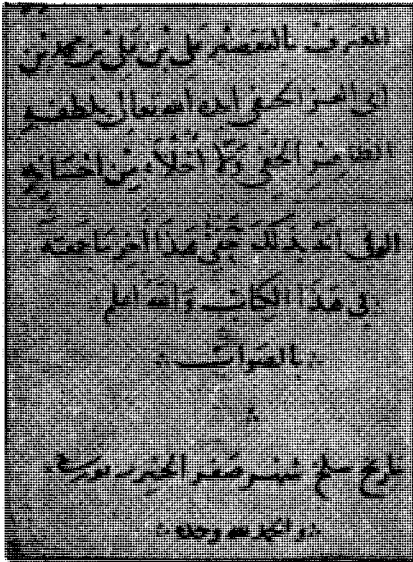 المعترف بالتقصير علي بن علي بن محمد بن
ابي العز الحنفي ايده الله تعالى بلطفه
الحنفي من احسانه
هذا آخر ما جمعته
في هذا الكتاب والله اعلم
بالصواب
تاريخ سلخ شهر صفر الخير
والحمد لله وحده